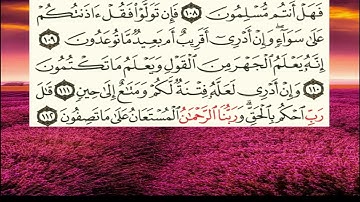 فَهَلْ أَنتُم مُّسْلِمُونَ ١٠٨ فَإِن تَوَلَّوْا۟ فَقُلْ ءَاذَنتُكُمْ
عَلَىٰ سَوَآءٍ وَإِنْ أَدْرِىٓ أَقَرِيبٌ أَم بَعِيدٌ مَّا تُوعَدُونَ ١٠٩
إِنَّهُۥ يَعْلَمُ ٱلْجَهْرَ مِنَ ٱلْقَوْلِ وَيَعْلَمُ مَا تَكْتُمُونَ
١١٠ وَإِنْ أَدْرِى لَعَلَّهُۥ فِتْنَةٌ لَّكُمْ وَمَتَٰعٌ إِلَىٰ حِينٍ ١١١ قَٰلَ
رَبِّ ٱحْكُم بِٱلْحَقِّ وَرَبُّنَا ٱلرَّحْمَٰنُ ٱلْمُسْتَعَانُ عَلَىٰ مَا تَصِفُونَ ١١٢